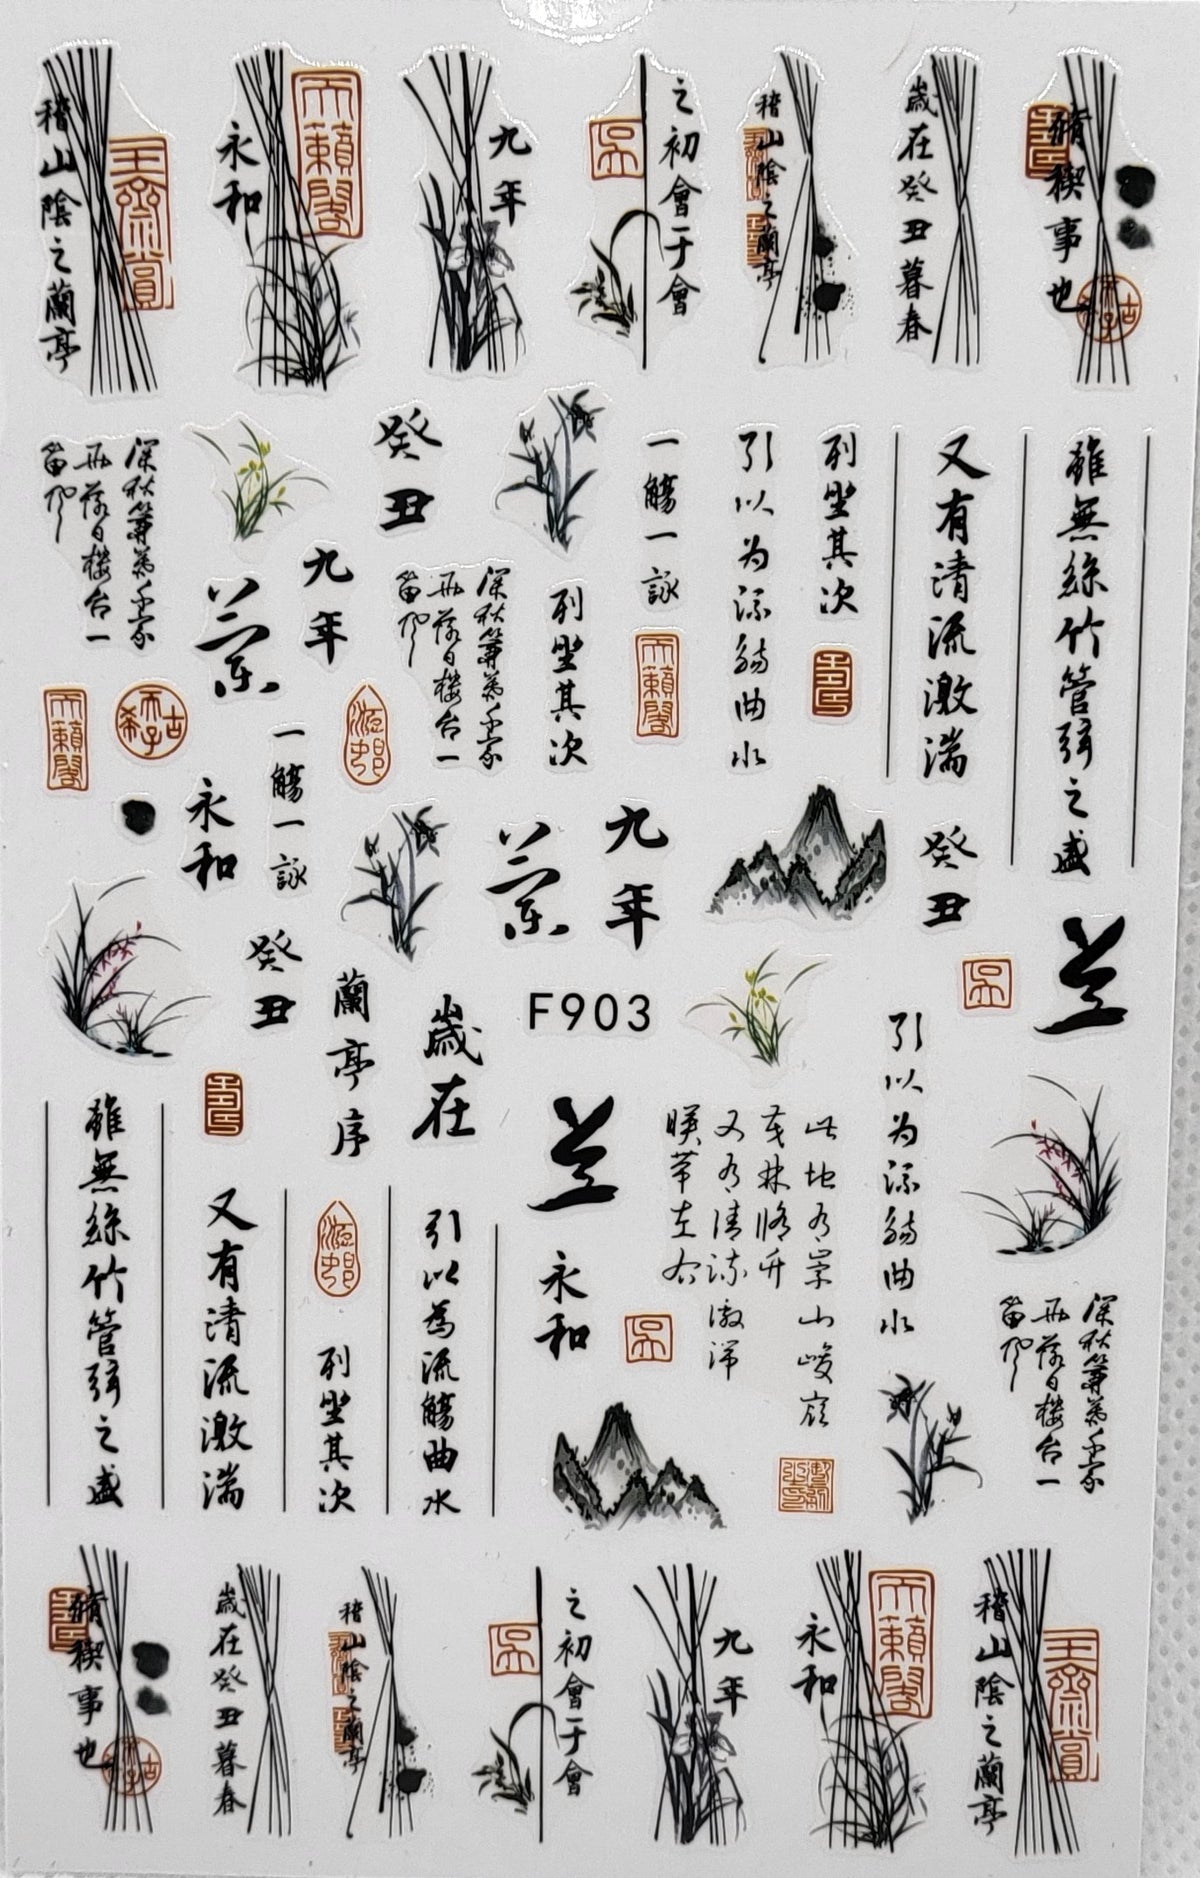 稽山陰之蘭亭
永和
天籟閣
九年
之初會于會
稽山陰之蘭亭
歲在癸丑暮春
脩禊事也
深秋簾幕千家
雨落日樓台一
笛风
癸丑
一觴一詠
引以为流觴曲水
列坐其次
又有清流激湍
雖無絲竹管弦之盛
九年
兰
深秋簾幕千家
雨落日樓台一
笛风
列坐其次
天籟閣
天籟閣
古希天子
永和
一觴一詠
兰
九年
癸丑
癸丑
蘭亭序
歲在
F903
兰
引以为流觴曲水
雖無絲竹管弦之盛
又有清流激湍
列坐其次
引以為流觴曲水
兰
永和
此地有崇山峻嶺
茂林脩竹
又有清流激湍
暎带左右
深秋簾幕千家
雨落日樓台一
笛风
脩禊事也
歲在癸丑暮春
稽山陰之蘭亭
之初會于會
九年
永和
天籟閣
稽山陰之蘭亭